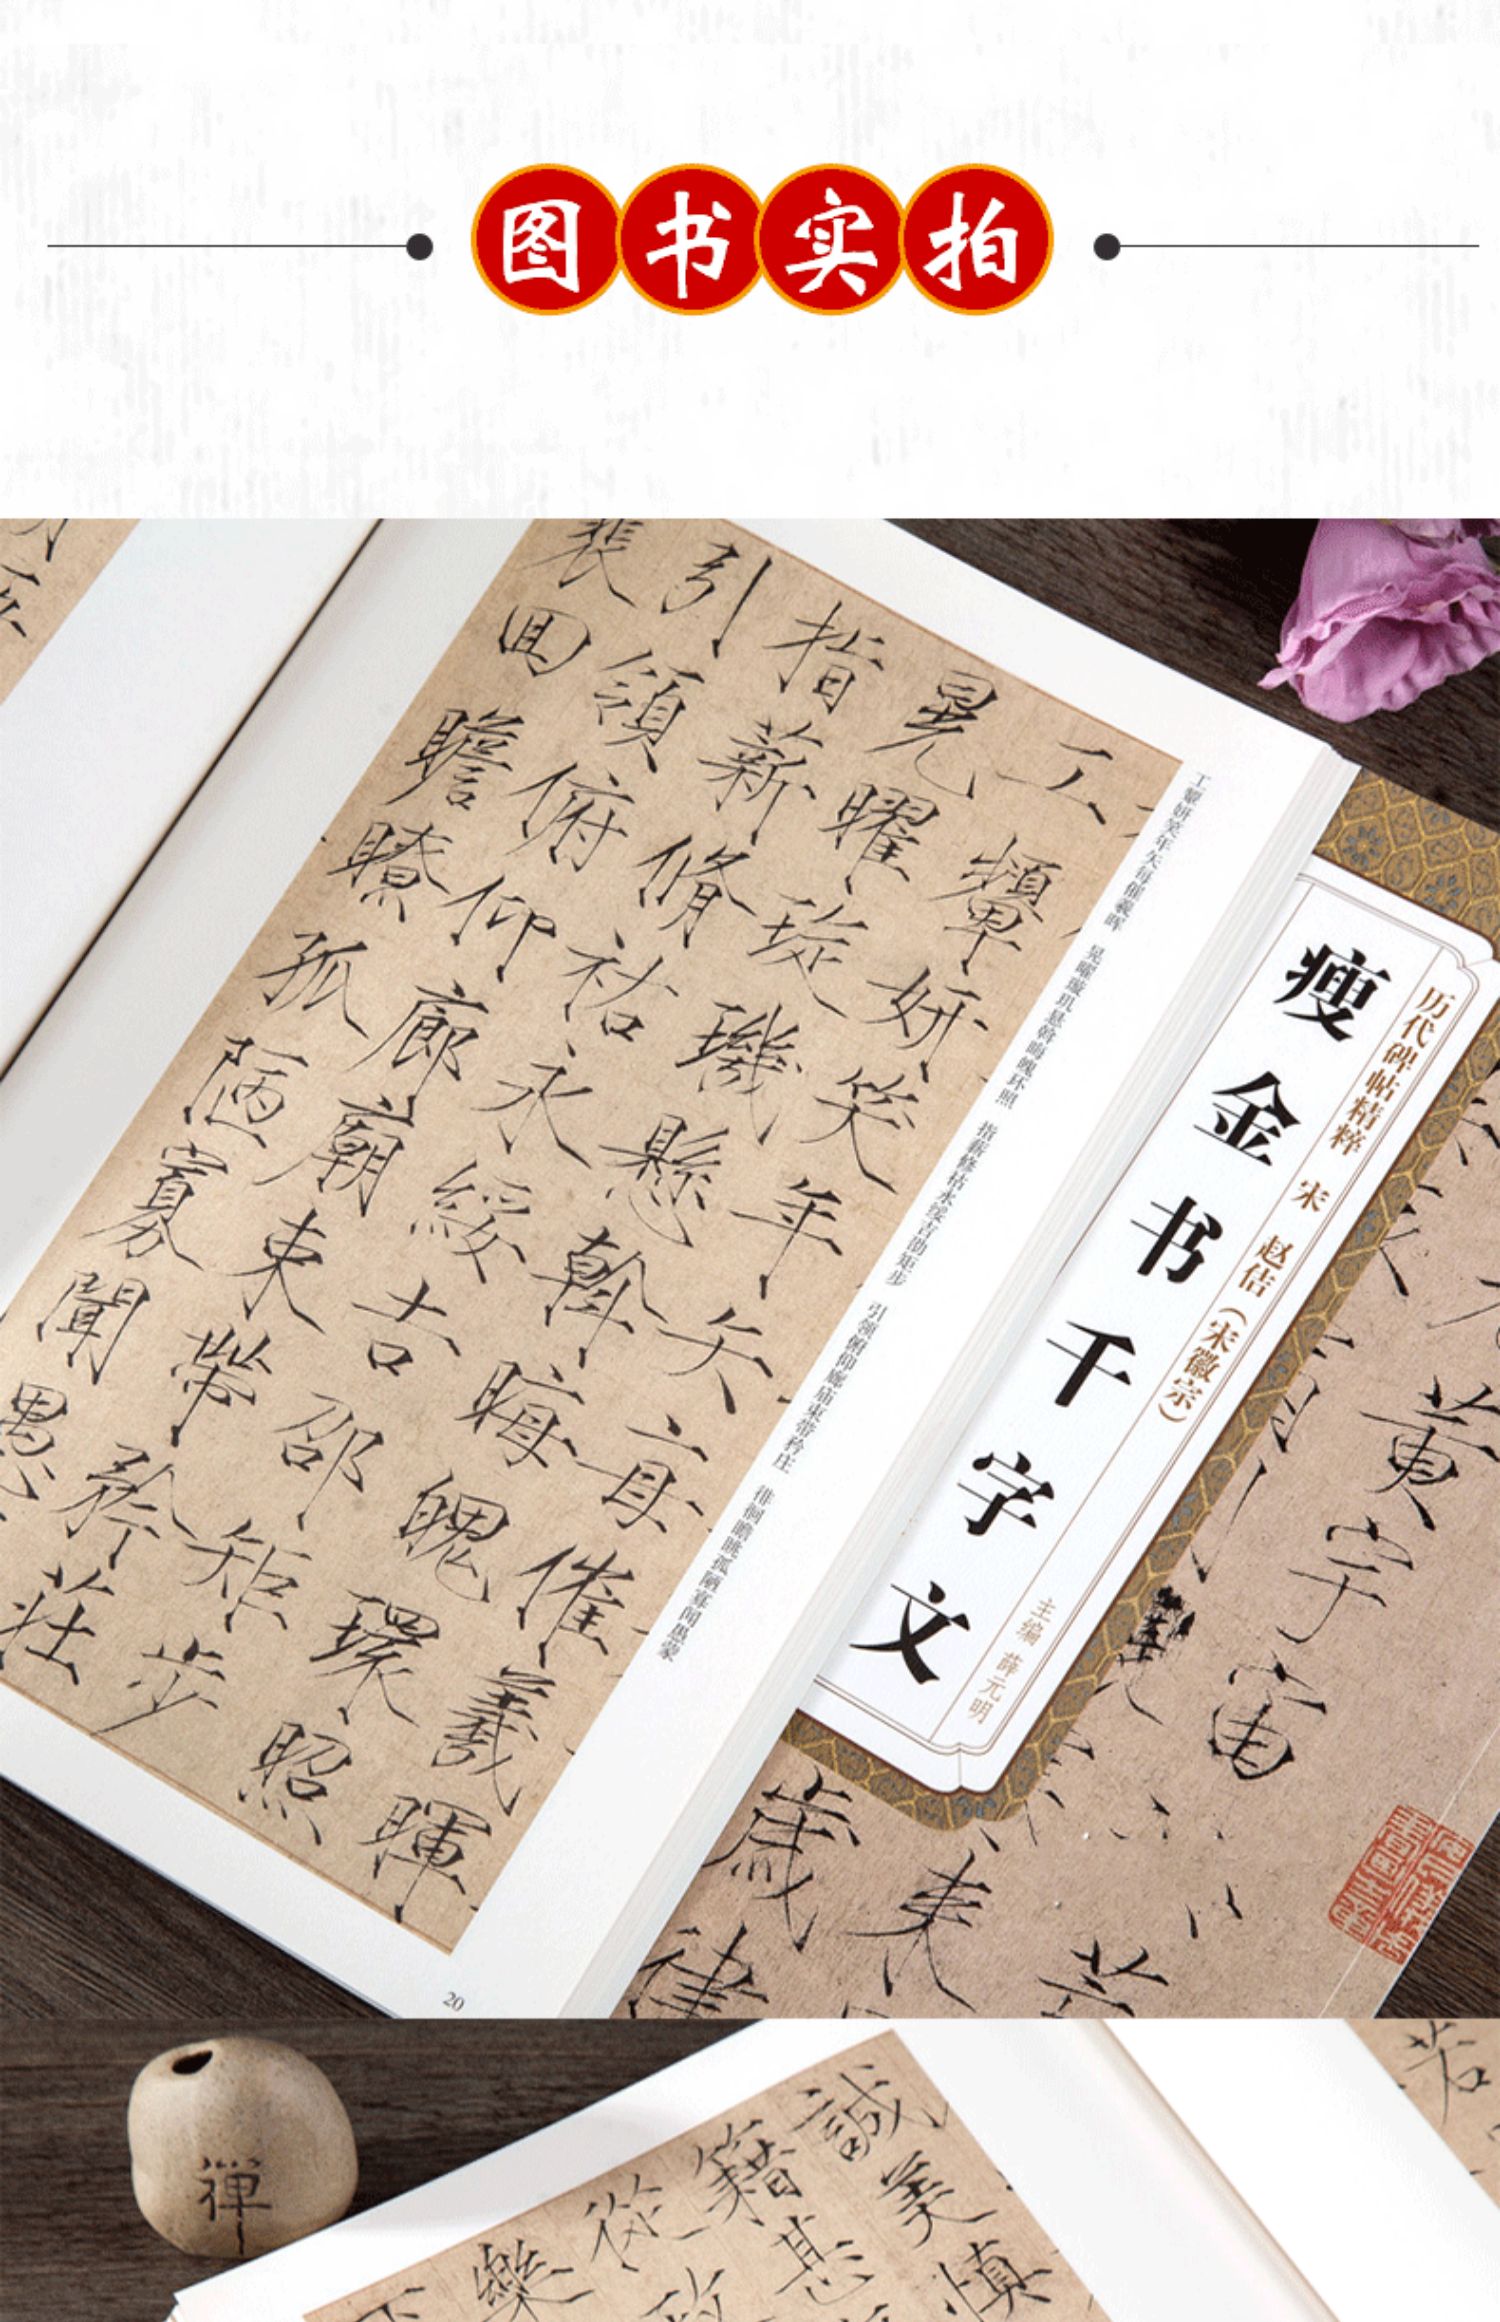 图书实拍
工颦妍笑年矢每催羲晖 晃曜璇玑悬斡晦魄环照 指薪修祜永绥吉劭矩步 引领俯仰廊庙束带矜庄 徘徊瞻眺孤陋寡闻愚蒙
工顰妍笑年矢每催羲暉
晃曜琁璣懸斡晦魄環照
指薪脩祜永綏吉邵矩步
引領俯仰廊廟束帶矜莊
裴回瞻瞭孤陋寡聞愚
20
历代碑帖精粹 宋 赵佶（宋徽宗）
瘦金书千字文
主编 薛元明
黄宇宙
歲
律
禅
誠美慎
籍甚
從
樂
若